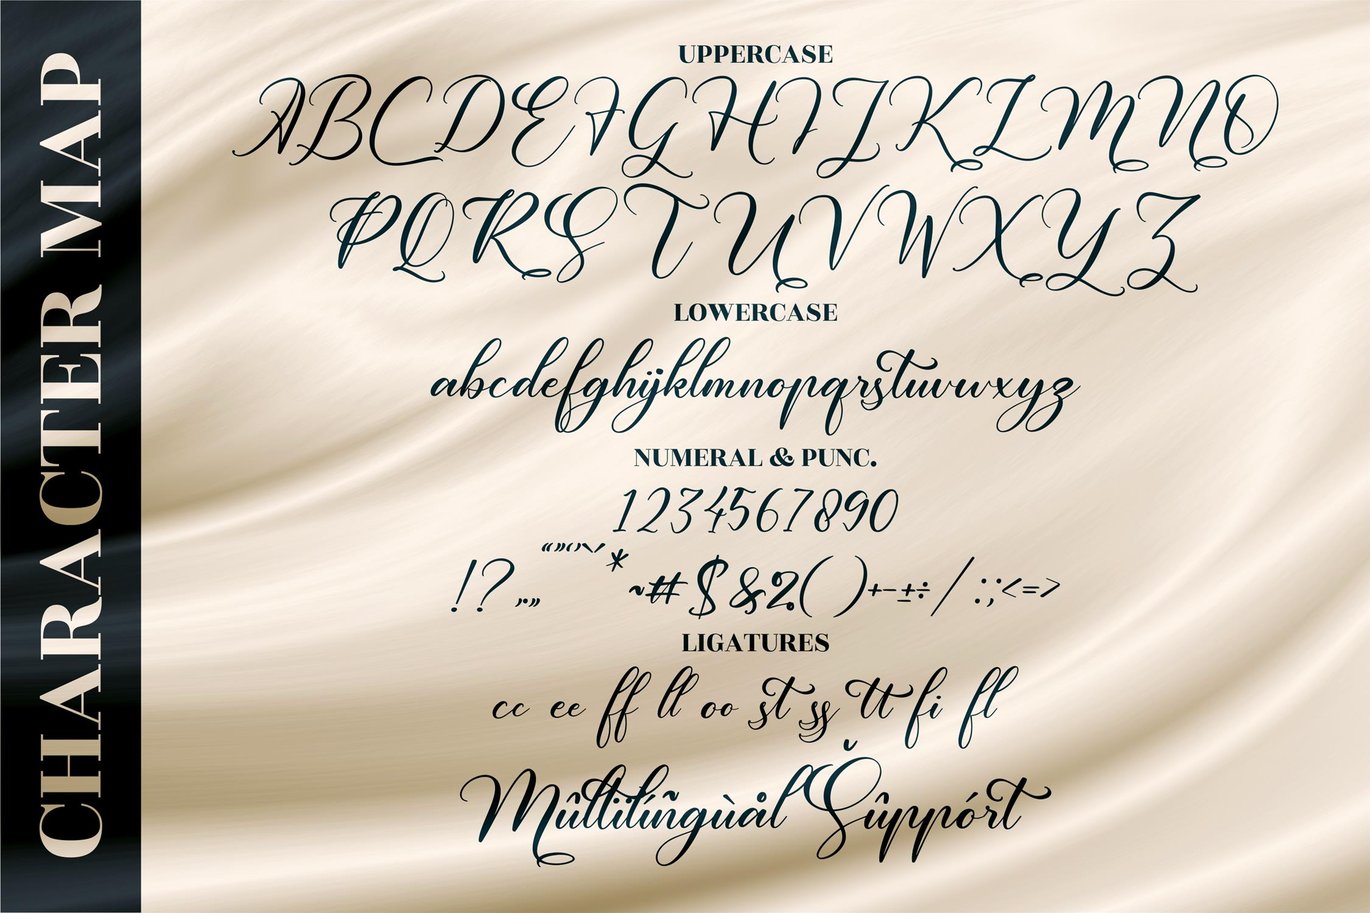 CHARACTER MAP
UPPERCASE
ABCDEFGHIJKLMNO
PQRSTUVWXYZ
LOWERCASE
abcdefghijklmnopqrstuvwxyz
NUMERAL & PUNC.
1234567890
!?,.„“”‘’`´*~#$&%()+−±÷/:;<=>
LIGATURES
cc ee ff ll oo st ss tt fi fl
Mûltilíñgùàl Sŭppórt